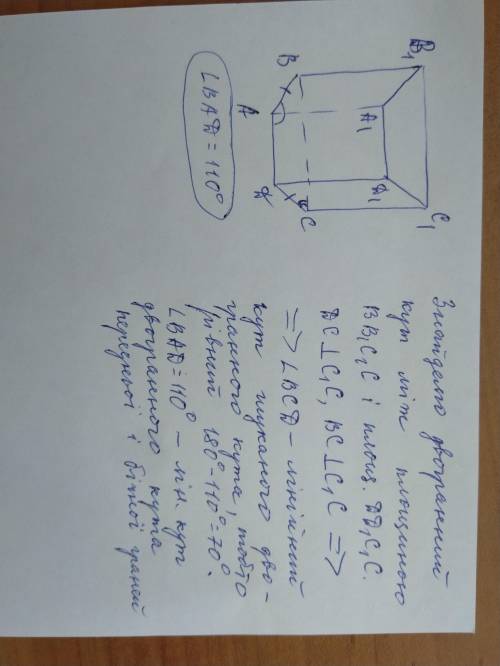 B₁
C₁
A₁
D₁
B
C
A
D
∠BAD = 110°
Знайдемо двогранний
кут між площиною
BB₁C₁C і площ. DD₁C₁C.
DC⊥C₁C, BC⊥C₁C =>
=> ∠BCD – лінійний
кут шуканого дво-
гранного кута, тобто
рівний 180°-110°=70°.
∠BAD=110° – лін. кут
двогранного кута
передньої і бічної граней